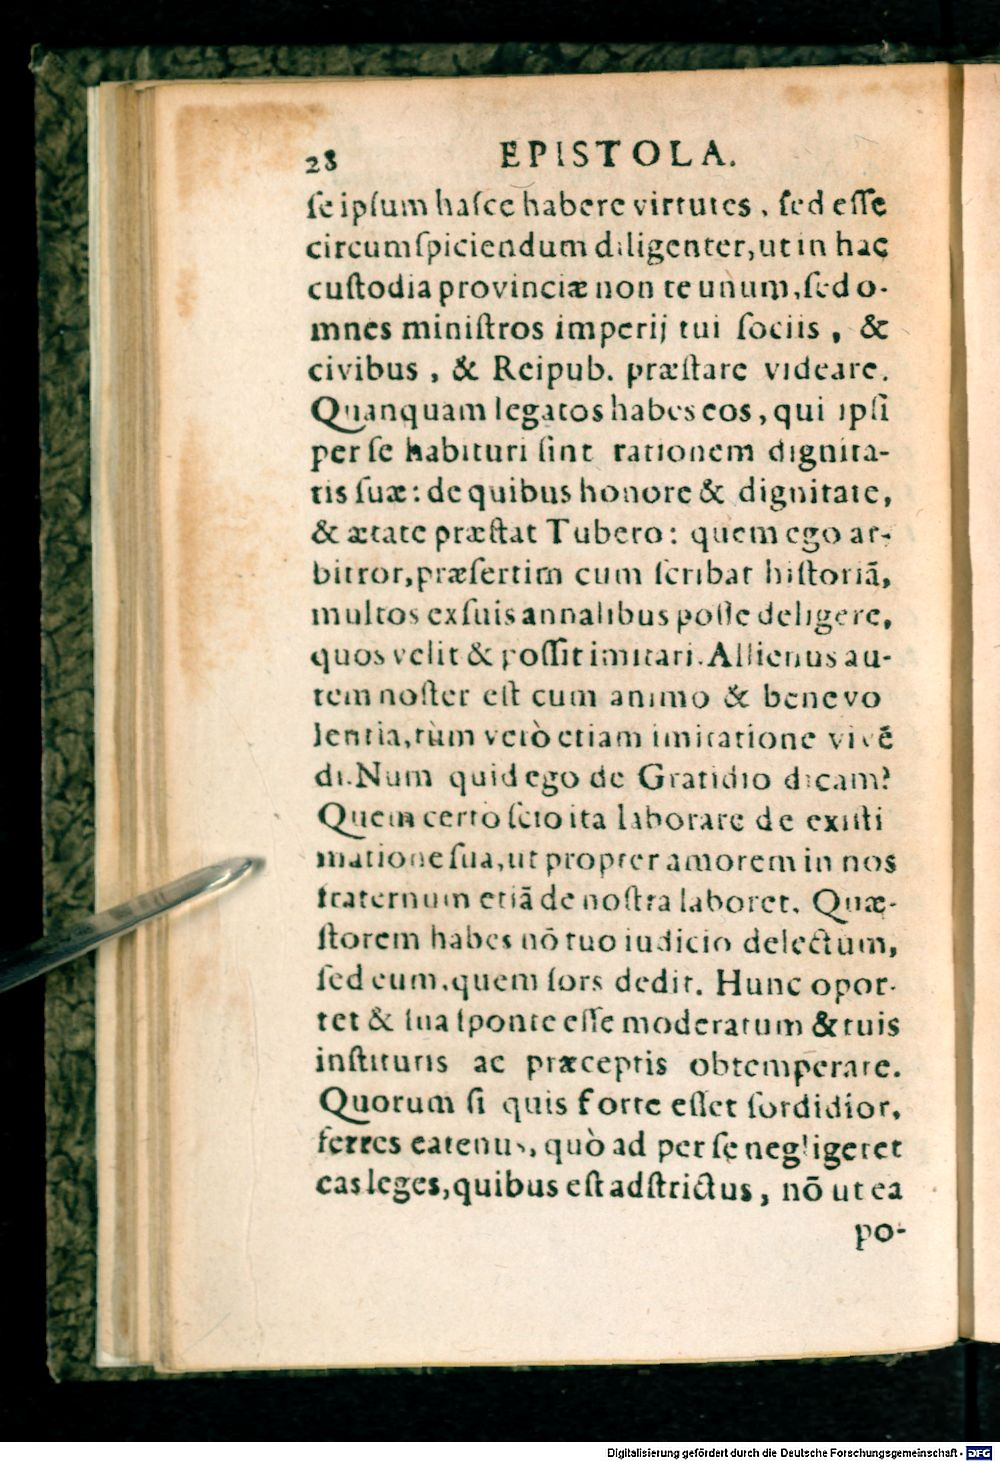 28 EPISTOLA.
ſe ipſum haſce habere virtutes, ſed eſſe
circumſpiciendum diligenter, ut in hac
cuſtodia provinciæ non te unùm, ſed o-
mnes miniſtros imperij tui ſociis, &
civibus, & Reipub. præſtare videare.
Quanquam legatos habes eos, qui ipſi
per ſe habituri ſint rationem dignita-
tis ſuæ: de quibus honore & dignitate,
& ætate præſtat Tubero: quem ego ar-
bitror, præſertim cum ſcribat hiſtoriā,
multos ex ſuis annalibus poſſe deligere,
quos velit & poſſit imitari. Allienus au-
tem noſter eſt cum animo & benevo
lentia, tùm verò etiam imitatione vivē
di. Num quid ego de Gratidio dicam?
Quem certo ſcio ita laborare de exiſti
matione ſua, ut propter amorem in nos
fraternum etiā de noſtra laboret. Quæ-
ſtorem habes nō tuo iudicio delectum,
ſed eum, quem ſors dedit. Hunc opor-
tet & ſua ſponte eſſe moderatum & tuis
inſtitutis ac præceptis obtemperare.
Quorum ſi quis forte eſſet ſordidior,
ferres eatenus, quò ad per ſe negligeret
eas leges, quibus eſt adſtrictus, nō ut ea
po-
Digitalisierung gefördert durch die Deutsche Forschungsgemeinschaft - DFG